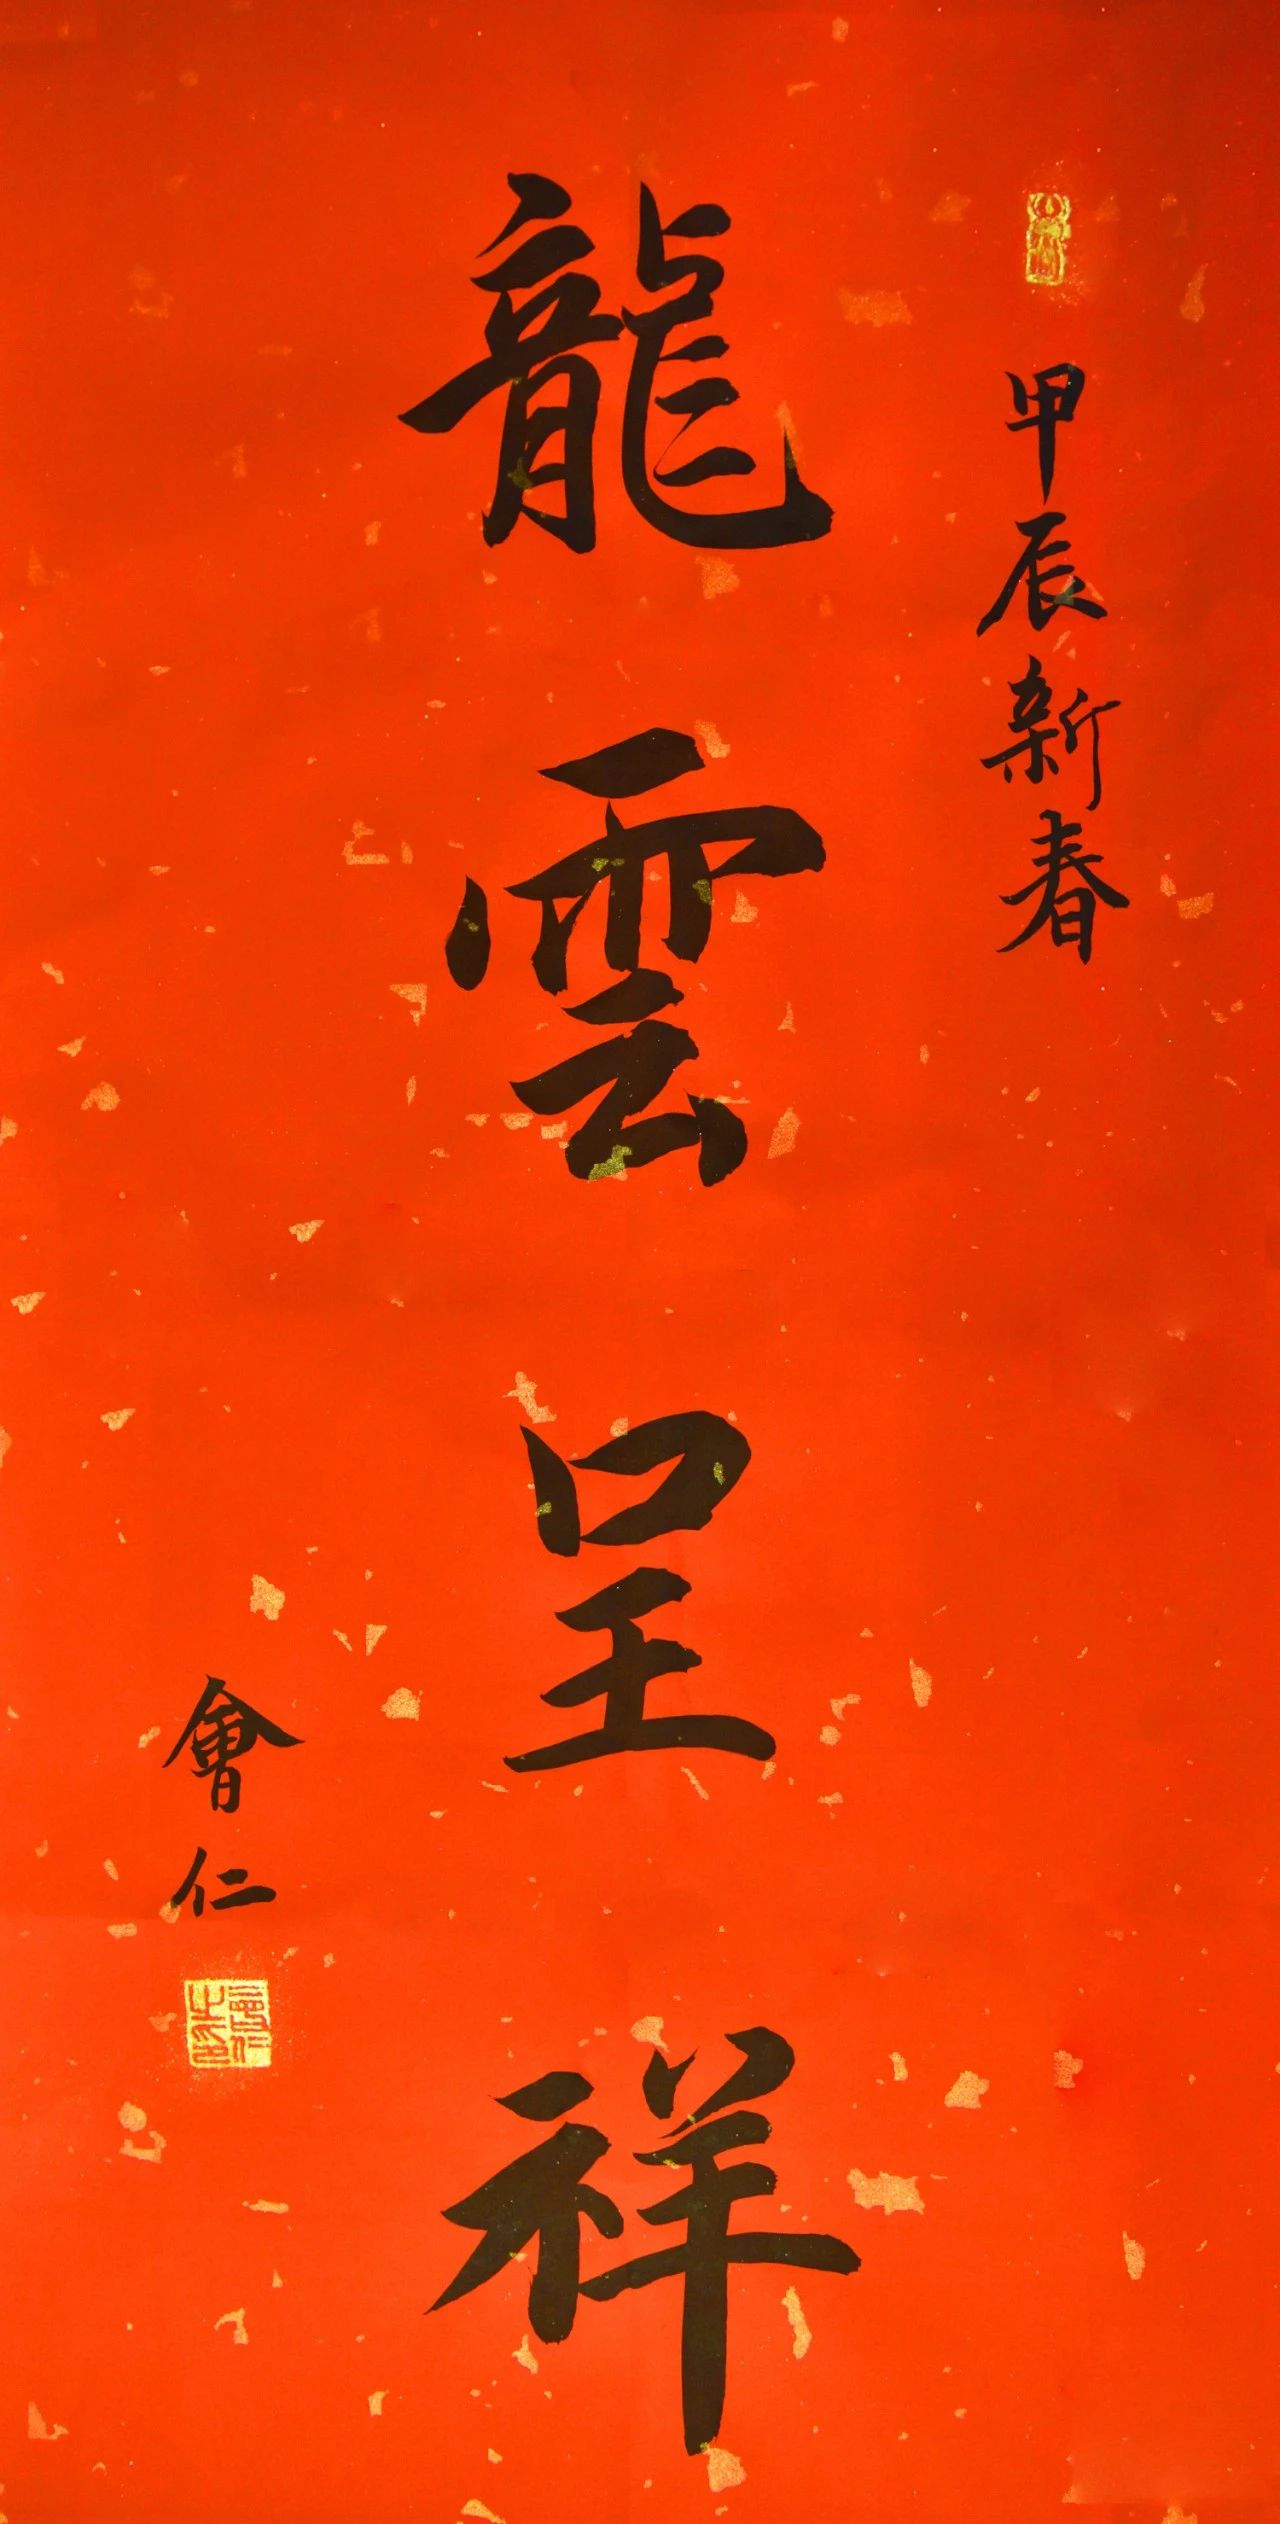 甲辰新春
龍雲呈祥
會仁